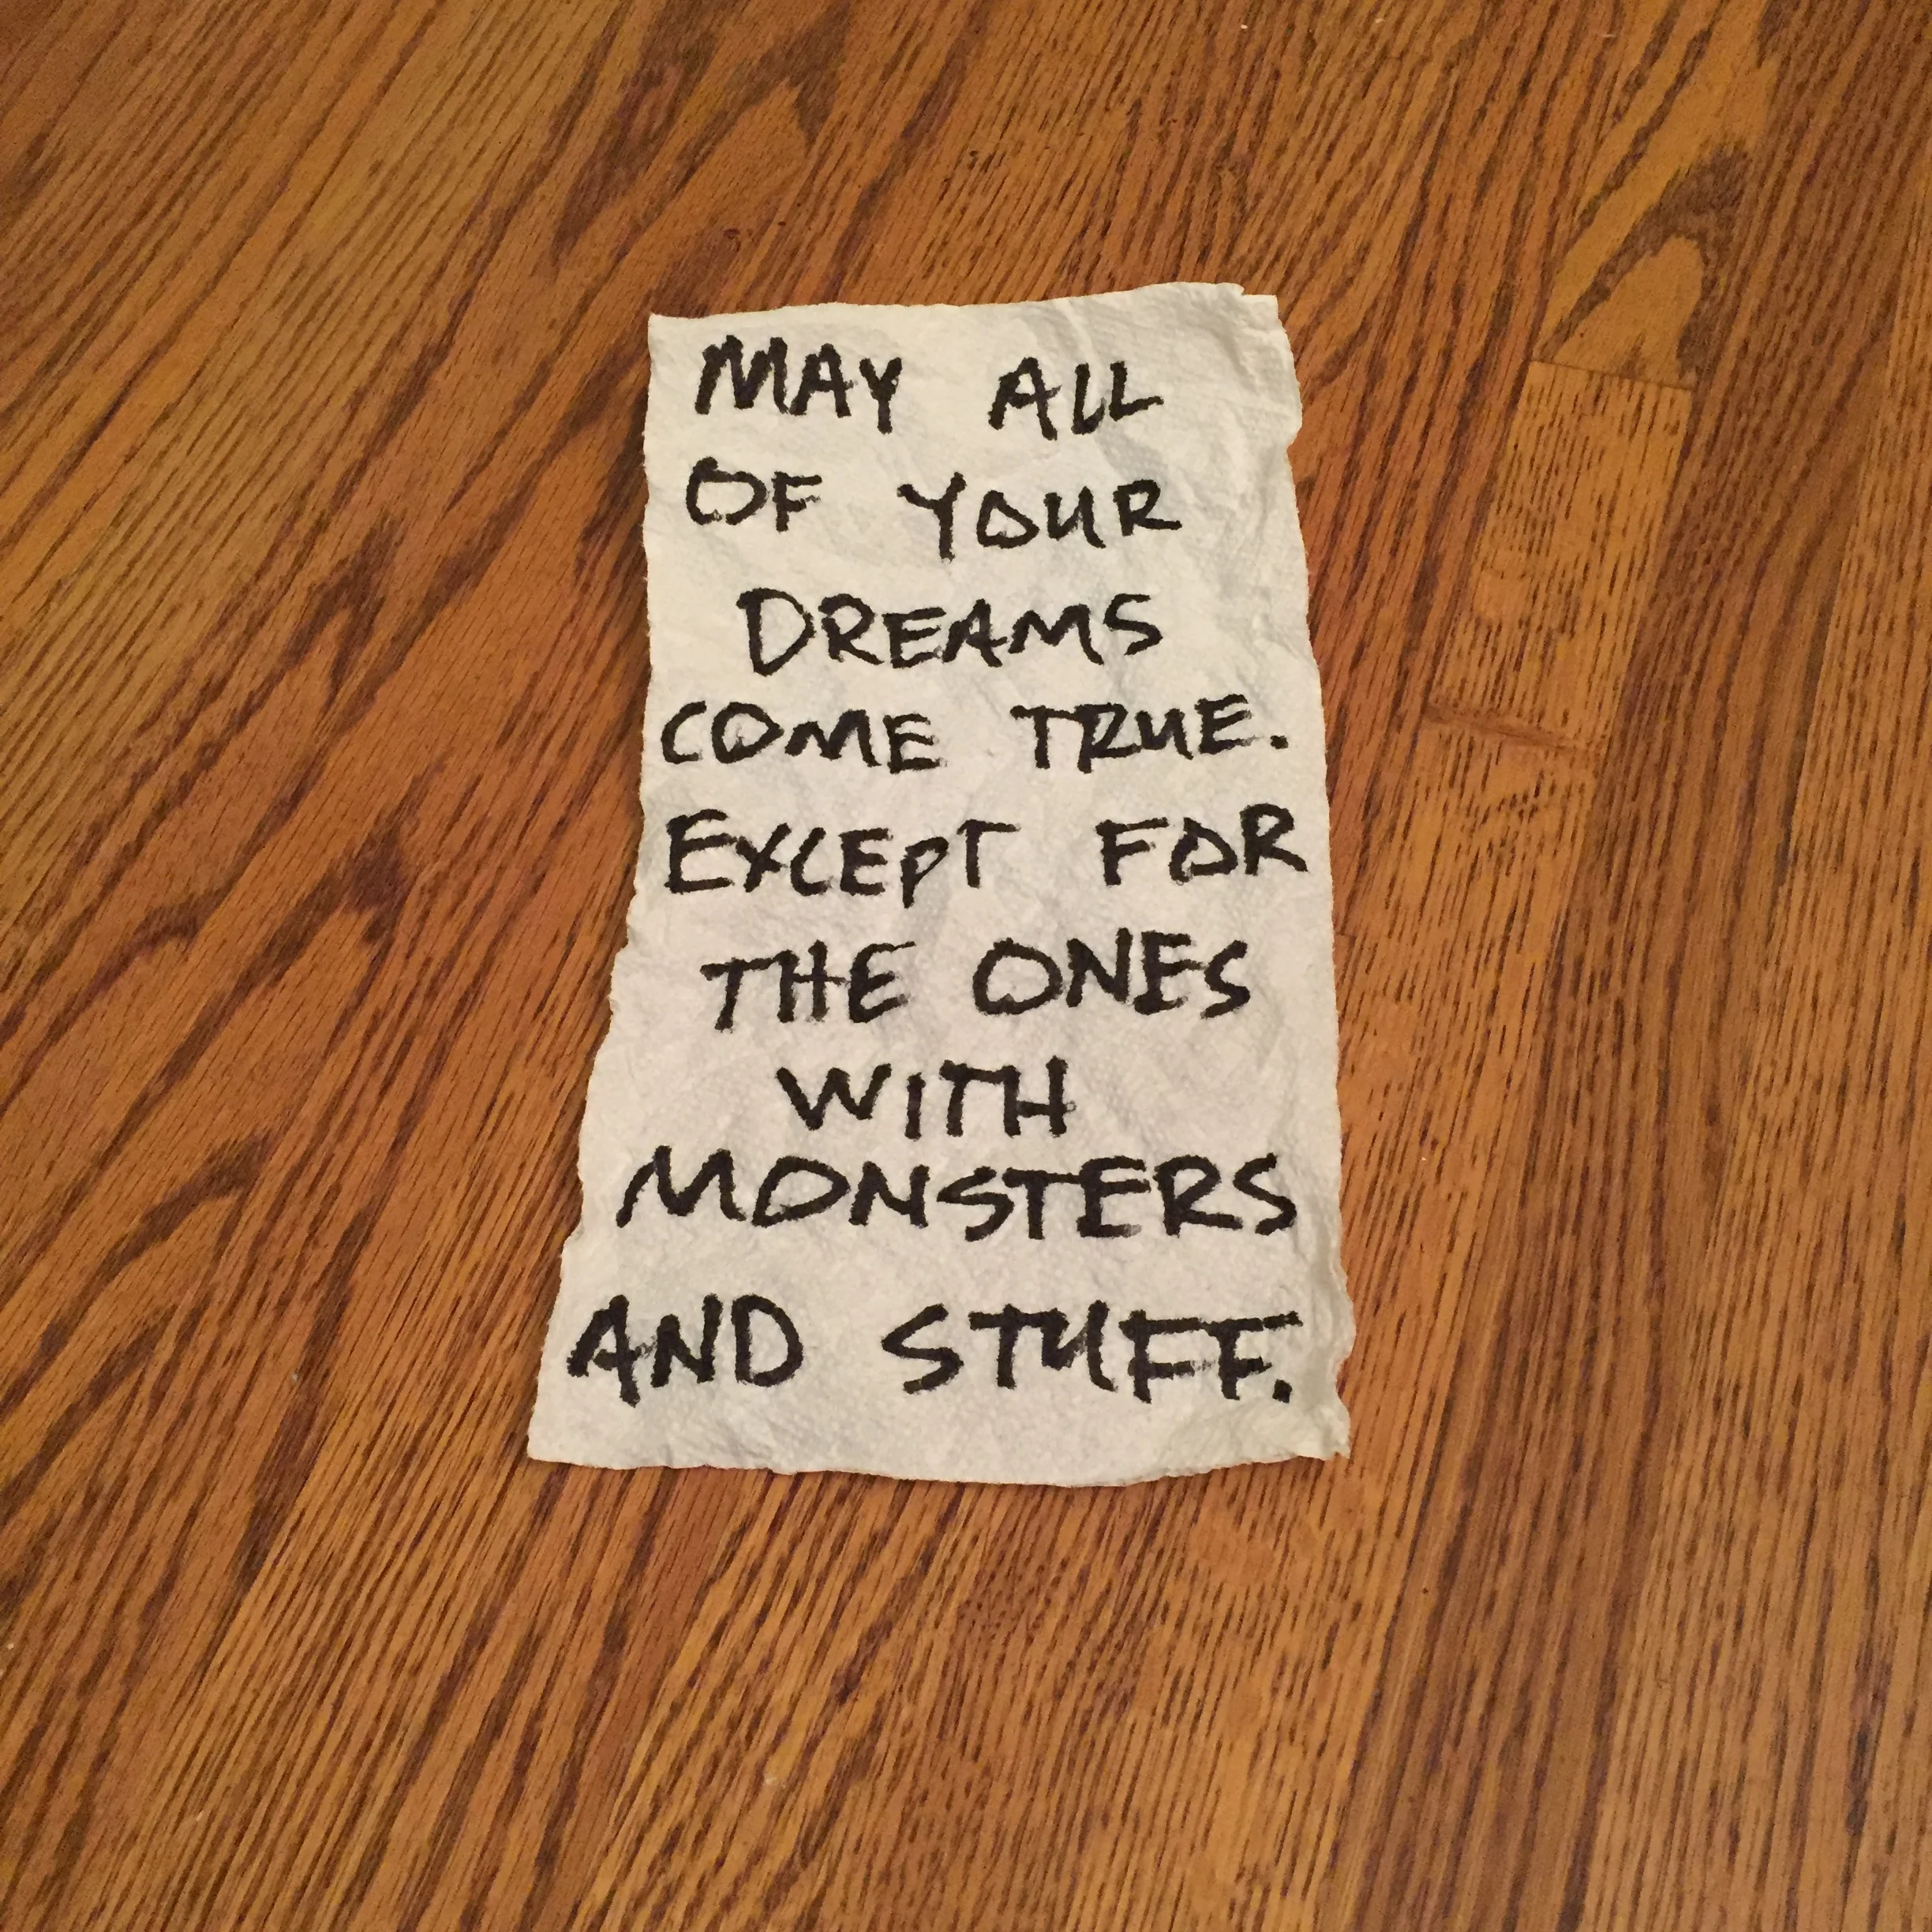 MAY ALL
OF YOUR
DREAMS
COME TRUE.
EXCEPT FOR
THE ONES
WITH
MONSTERS
AND STUFF.